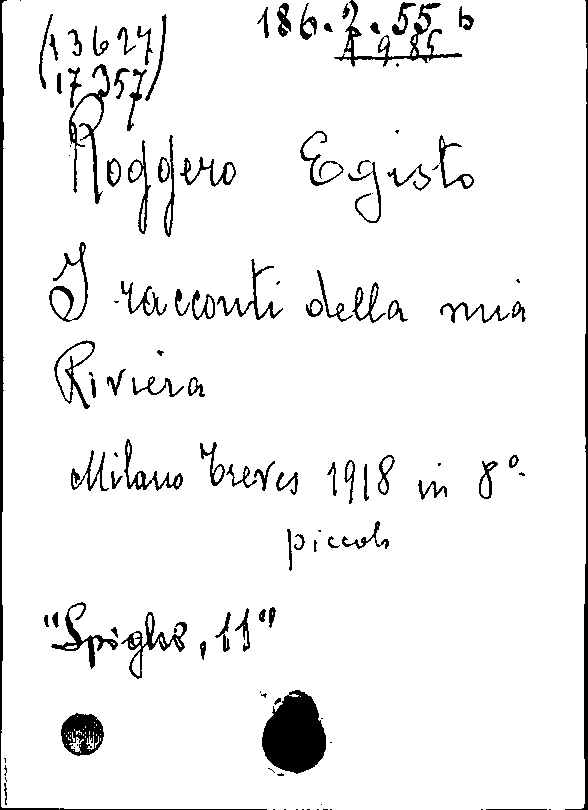 (13627
17357)
186.2.55 b
A 9.85
Roggero Egisto
I racconti della mia
Riviera
Milano Treves 1918 in 8º
piccolo
"Spighe, 11"